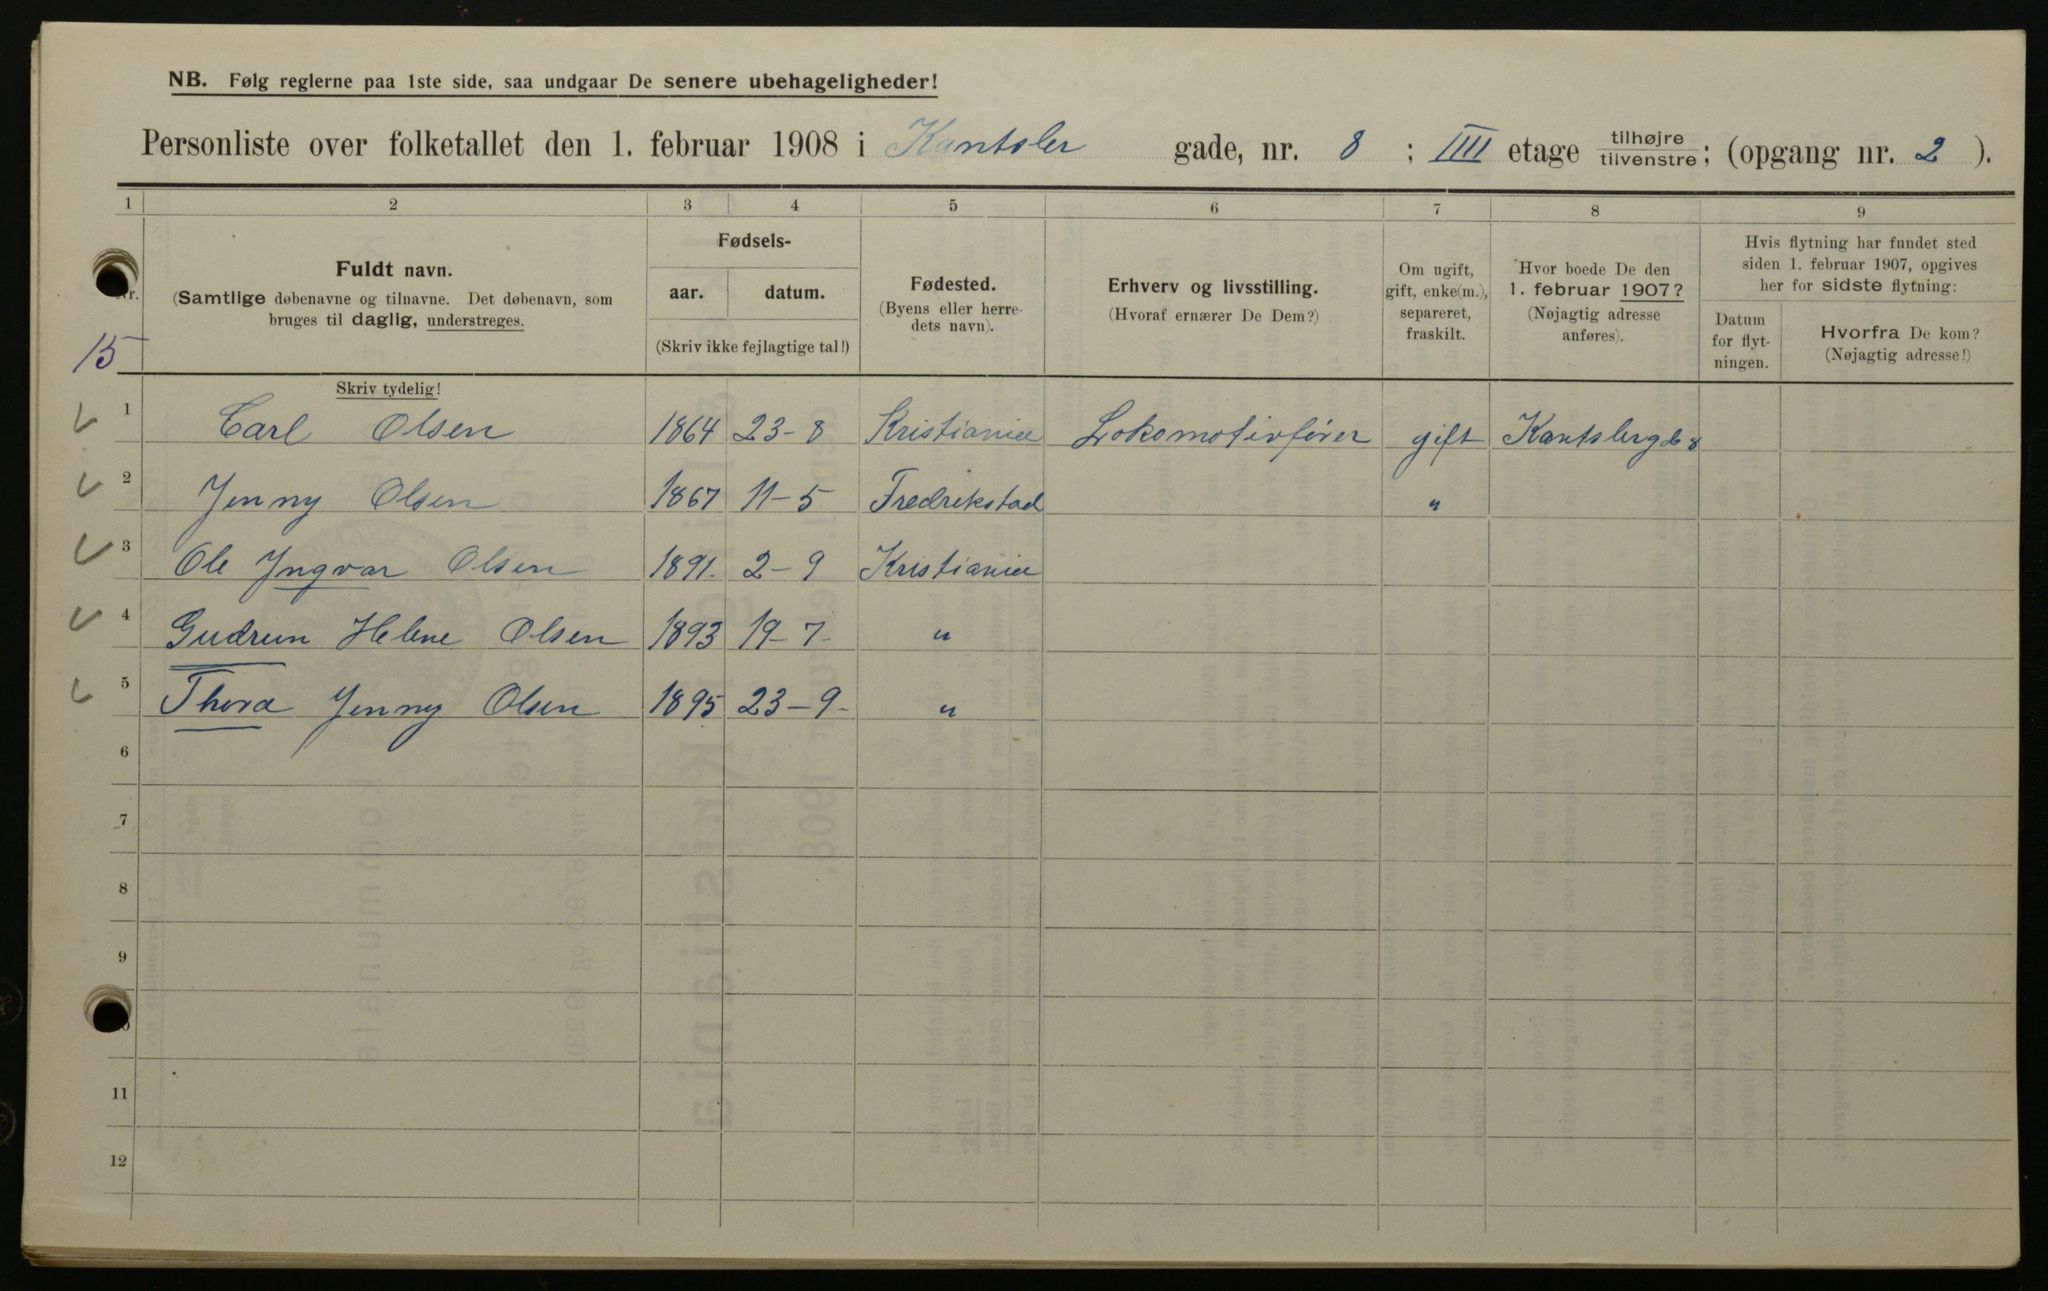 NB. Følg reglerne paa 1ste side, saa undgaar De senere ubehageligheder!
Personliste over folketallet den 1. februar 1908 i Kantsler gade, nr. 8 ; IIII etage tilhøjre tilvenstre; (opgang nr. 2 ).
1 2 3 4 5 6 7 8 9
Nr.
Fuldt navn.
(Samtlige døbenavne og tilnavne. Det døbenavn, som
bruges til daglig, understreges.
Skriv tydelig!
Fødsels-
aar. datum.
(Skriv ikke fejlagtige tal!)
Fødested.
(Byens eller herre-
dets navn).
Erhverv og livsstilling.
(Hvoraf ernærer De Dem?)
Om ugift,
gift, enke(m.),
separeret,
fraskilt.
Hvor boede De den
1. februar 1907?
(Nøjagtig adresse
anføres).
Hvis flytning har fundet sted
siden 1. februar 1907, opgives
her for sidste flytning:
Datum
for flyt-
ningen.
Hvorfra De kom?
(Nøjagtig adresse!)
15
1 Carl Olsen 1864 23-8 Kristiania Lokomotivfører gift Kantslergd 8
2 Jenny Olsen 1867 11-5 Fredrikstad "
3 Ole Yngvar Olsen 1891 2-9 Kristiania
4 Gudrun Helene Olsen 1893 19-7- "
5 Thora Jenny Olsen 1895 23-9- "
6
7
8
9
10
11
12